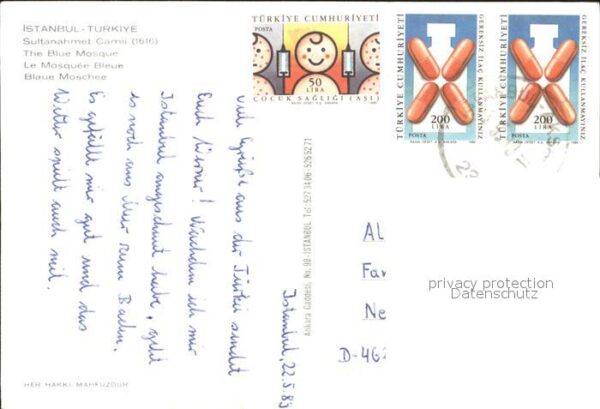 İSTANBUL-TÜRKİYE
Sultanahmet Camii (1616)
The Blue Mosque
Le Mosquée Bleue
Blaue Moschee
TÜRKİYE CUMHURİYETİ
POSTA
50
LİRA
ÇOCUK SAĞLIĞI (AŞI)
TÜRKİYE CUMHURİYETİ
GEREKSİZ İLAÇ KULLANMAYINIZ
200
LİRA
POSTA
TÜRKİYE CUMHURİYETİ
GEREKSİZ İLAÇ KULLANMAYINIZ
200
LİRA
POSTA
Istanbul, 22.5.89
Viele Grüße aus der Türkei sendet
Euch Werner! Nachdem ich mir
Istanbul angeschaut habe, geht
es noch ans Meer zum Baden.
Es gefällt mir gut und das
Wetter spielt auch mit.
Ankara Caddesi, No. 98-İSTANBUL Tel: 5273406-5266271
AL
Fa
Ne
D-462
privacy protection
Datenschutz
HER HAKKI MAHFUZDUR